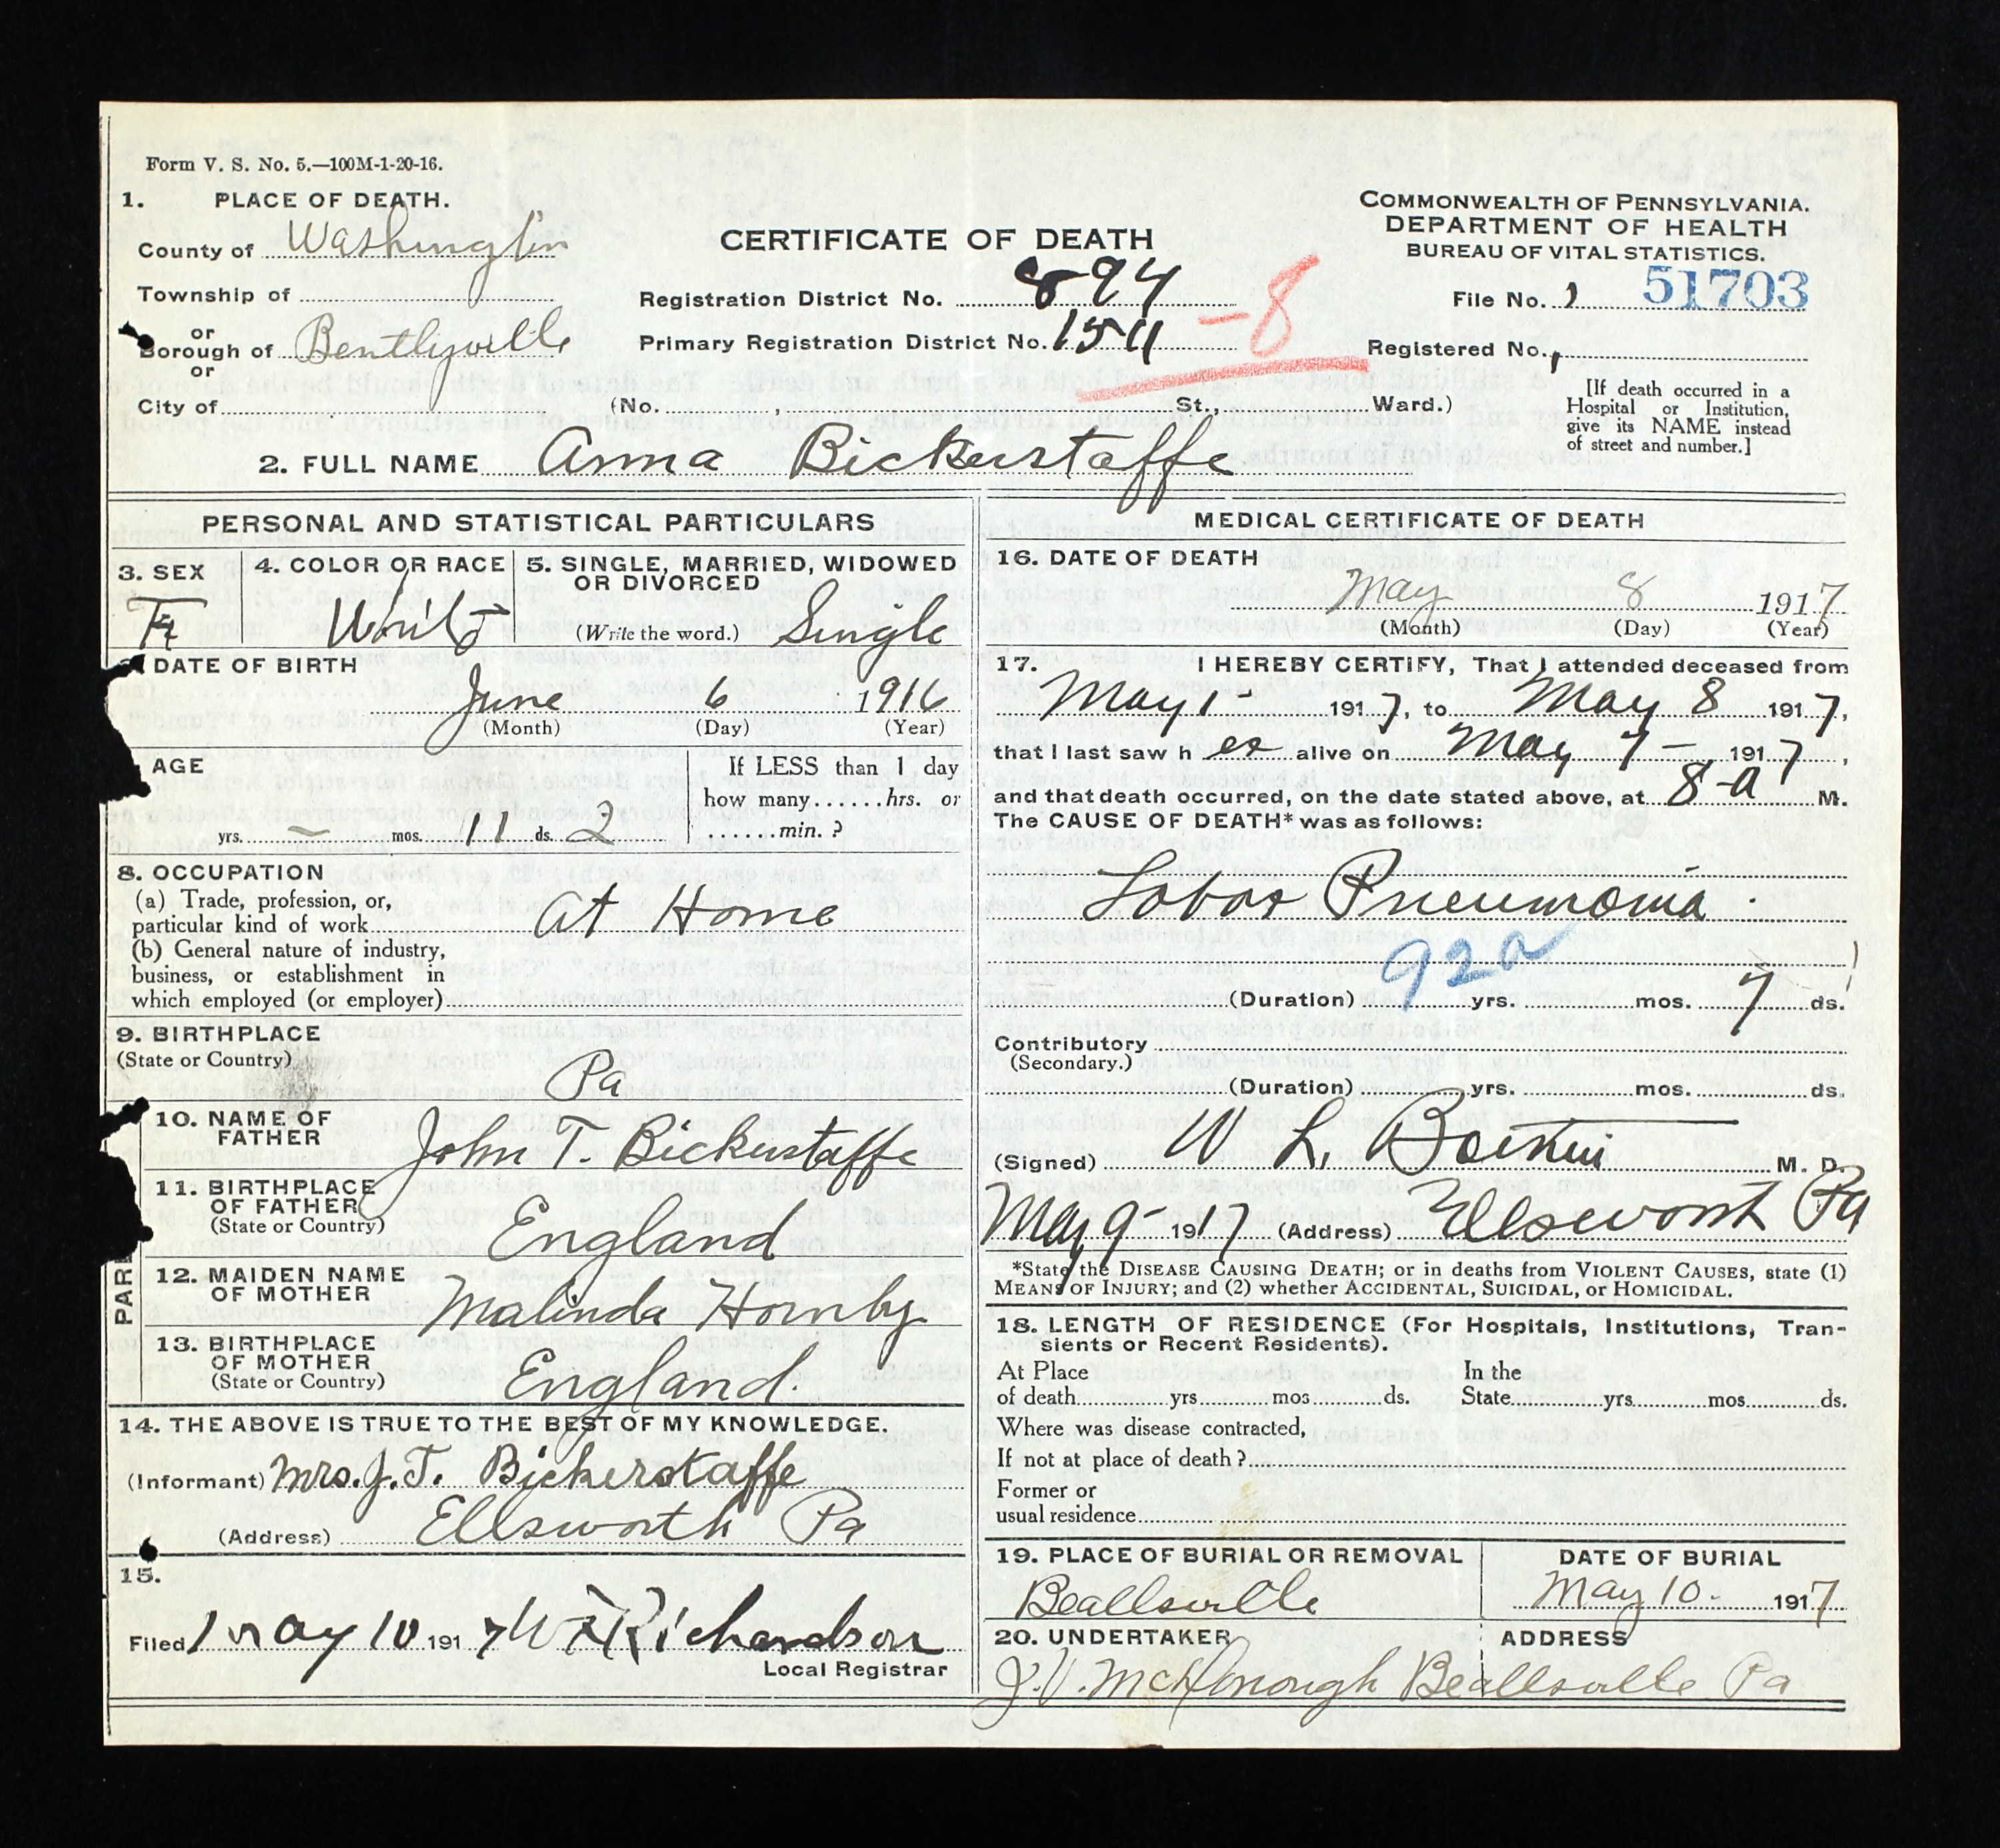 Form V. S. No. 5.—100M-1-20-16.
1. PLACE OF DEATH.
County of Washington
Township of
or
Borough of Bentlyville
or
City of
CERTIFICATE OF DEATH
Registration District No. 894
Primary Registration District No. 1511 -8
(No. , St., Ward.)
COMMONWEALTH OF PENNSYLVANIA.
DEPARTMENT OF HEALTH
BUREAU OF VITAL STATISTICS.
File No. 51703
Registered No.
[If death occurred in a
Hospital or Institution,
give its NAME instead
of street and number.]
2. FULL NAME Anna Bickerstaffe
PERSONAL AND STATISTICAL PARTICULARS
3. SEX
F
4. COLOR OR RACE
White
5. SINGLE, MARRIED, WIDOWED
OR DIVORCED
(Write the word.) Single
DATE OF BIRTH
June 6 1916
(Month) (Day) (Year)
AGE
yrs. – mos. 11 ds. 2
If LESS than 1 day
how many......hrs. or
......min. ?
8. OCCUPATION
(a) Trade, profession, or,
particular kind of work At Home
(b) General nature of industry,
business, or establishment in
which employed (or employer)
9. BIRTHPLACE
(State or Country)
Pa
10. NAME OF
FATHER
John T. Bickerstaffe
11. BIRTHPLACE
OF FATHER
(State or Country)
England
12. MAIDEN NAME
OF MOTHER
Malinda Hornby
13. BIRTHPLACE
OF MOTHER
(State or Country)
England.
PARE
14. THE ABOVE IS TRUE TO THE BEST OF MY KNOWLEDGE.
(Informant) Mrs. J. T. Bickerstaffe
(Address) Ellsworth Pa
15.
Filed May 10 1917 Richardson
Local Registrar
MEDICAL CERTIFICATE OF DEATH
16. DATE OF DEATH
May 8 1917
(Month) (Day) (Year)
17. I HEREBY CERTIFY, That I attended deceased from
May 1- 1917, to May 8 1917,
that I last saw her alive on May 7- 1917,
and that death occurred, on the date stated above, at 8-a M.
The CAUSE OF DEATH* was as follows:
Lobar Pneumonia.
92a
(Duration) yrs. mos. 7 ds.
Contributory
(Secondary.)
(Duration) yrs. mos. ds.
(Signed) W L. M. D.
May 9- 1917 (Address) Ellsworth Pa
*State the DISEASE CAUSING DEATH; or in deaths from VIOLENT CAUSES, state (1)
MEANS OF INJURY; and (2) whether ACCIDENTAL, SUICIDAL, or HOMICIDAL.
18. LENGTH OF RESIDENCE (For Hospitals, Institutions, Tran-
sients or Recent Residents).
At Place
of death yrs. mos. ds.
In the
State yrs. mos. ds.
Where was disease contracted,
If not at place of death ?
Former or
usual residence
19. PLACE OF BURIAL OR REMOVAL
Beallsville
DATE OF BURIAL
May 10- 1917
20. UNDERTAKER
J. V. McDonough
ADDRESS
Beallsville Pa